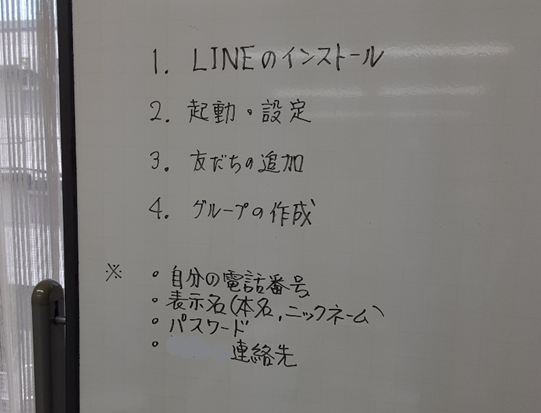 1. LINEのインストール
2. 起動・設定
3. 友だちの追加
4. グループの作成
※ ・自分の電話番号
・表示名(本名,ニックネーム)
・パスワード
・ 連絡先